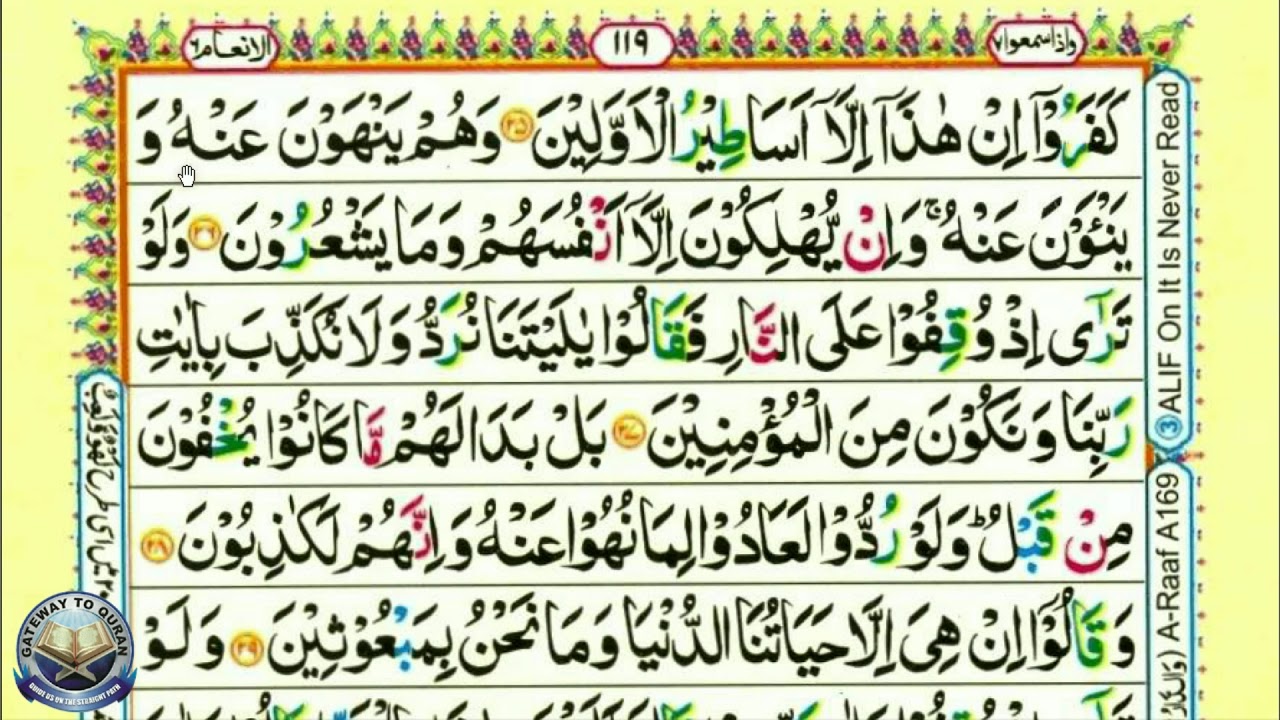 واذاسمعوا٧
١١٩
الانعام٦
كَفَرُوْٓا اِنْ هٰذَآ اِلَّآ اَسَاطِيْرُ الْاَوَّلِيْنَ ٢٥ وَهُمْ يَنْهَوْنَ عَنْهُ وَ
يَنْـَٔوْنَ عَنْهُ ۚ وَاِنْ يُّهْلِكُوْنَ اِلَّآ اَنْفُسَهُمْ وَمَا يَشْعُرُوْنَ ٢٦ وَلَوْ
تَرٰٓى اِذْ وُقِفُوْا عَلَى النَّارِ فَقَالُوْا يٰلَيْتَنَا نُرَدُّ وَلَا نُكَذِّبَ بِاٰيٰتِ
رَبِّنَا وَنَكُوْنَ مِنَ الْمُؤْمِنِيْنَ ٢٧ بَلْ بَدَا لَهُمْ مَّا كَانُوْا يُخْفُوْنَ
مِنْ قَبْلُ ؕ وَلَوْ رُدُّوْا لَعَادُوْا لِمَا نُهُوْا عَنْهُ وَاِنَّهُمْ لَكٰذِبُوْنَ ٢٨
وَقَالُوْٓا اِنْ هِىَ اِلَّا حَيَاتُنَا الدُّنْيَا وَمَا نَحْنُ بِمَبْعُوْثِيْنَ ٢٩ وَلَوْ
③ALIF On It Is Never Read
A-Raaf A169
GATEWAY TO QURAN
GUIDE US ON THE STRAIGHT PATH